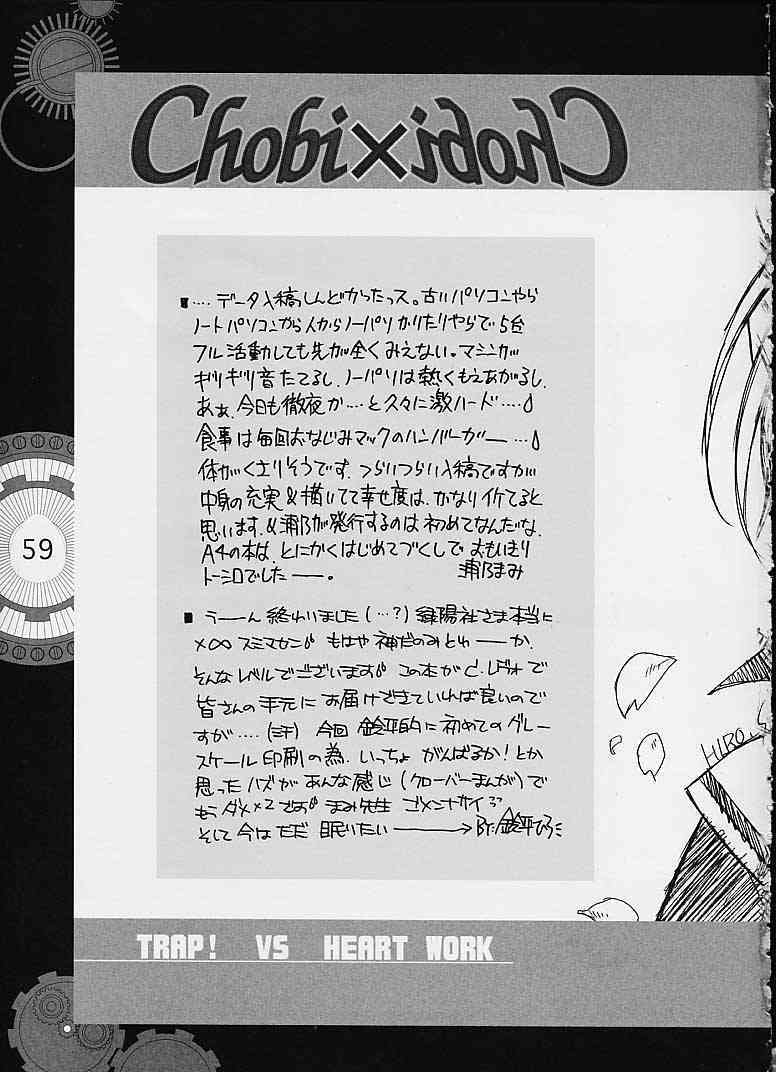 Chobi×Chobi
■‥‥データ入稿しんどかったっス。古いパソコンやら
ノートパソコンから人からノーパソかりたりやらで5台
フル活動しても先が全くみえない。マシンが
ギリギリ音たてるし、ノーパソは熱くもえあがるし、
あぁ、今日も徹夜か‥‥と久々に激ハード‥‥
食事は毎回おなじみマックのハンバーガー‥‥
体がくさりそうです。つらいつらい入稿ですが
中身の充実&描いてて幸せ度は、かなりイケてると
思います。&浦乃が発行するのは初めてなんだな。
A4の本は、とにかくはじめてづくしで おもいきり
トーシロでしたー。 浦乃まみ
■ うーーん 終わりました(‥?) 緑陽社さま本当に
×∞ スミマセン もはや 神だのみとゆーーか、
そんなレベルでございます この本が C.レヴォで
皆さんの手元に お届けできていれば良いので
すが‥‥(汗) 今回 鈴平的に初めてのグレー
スケール印刷の為、いっちょ がんばるか!とか
思ったハズが あんな感じ(クローバーまんが)で
もうダメ×2さぁ まみ先生 ゴメンナサイ
そして 今はただ 眠りたい ———→ By:鈴平ひろ
HIRO
59
TRAP! VS HEART WORK